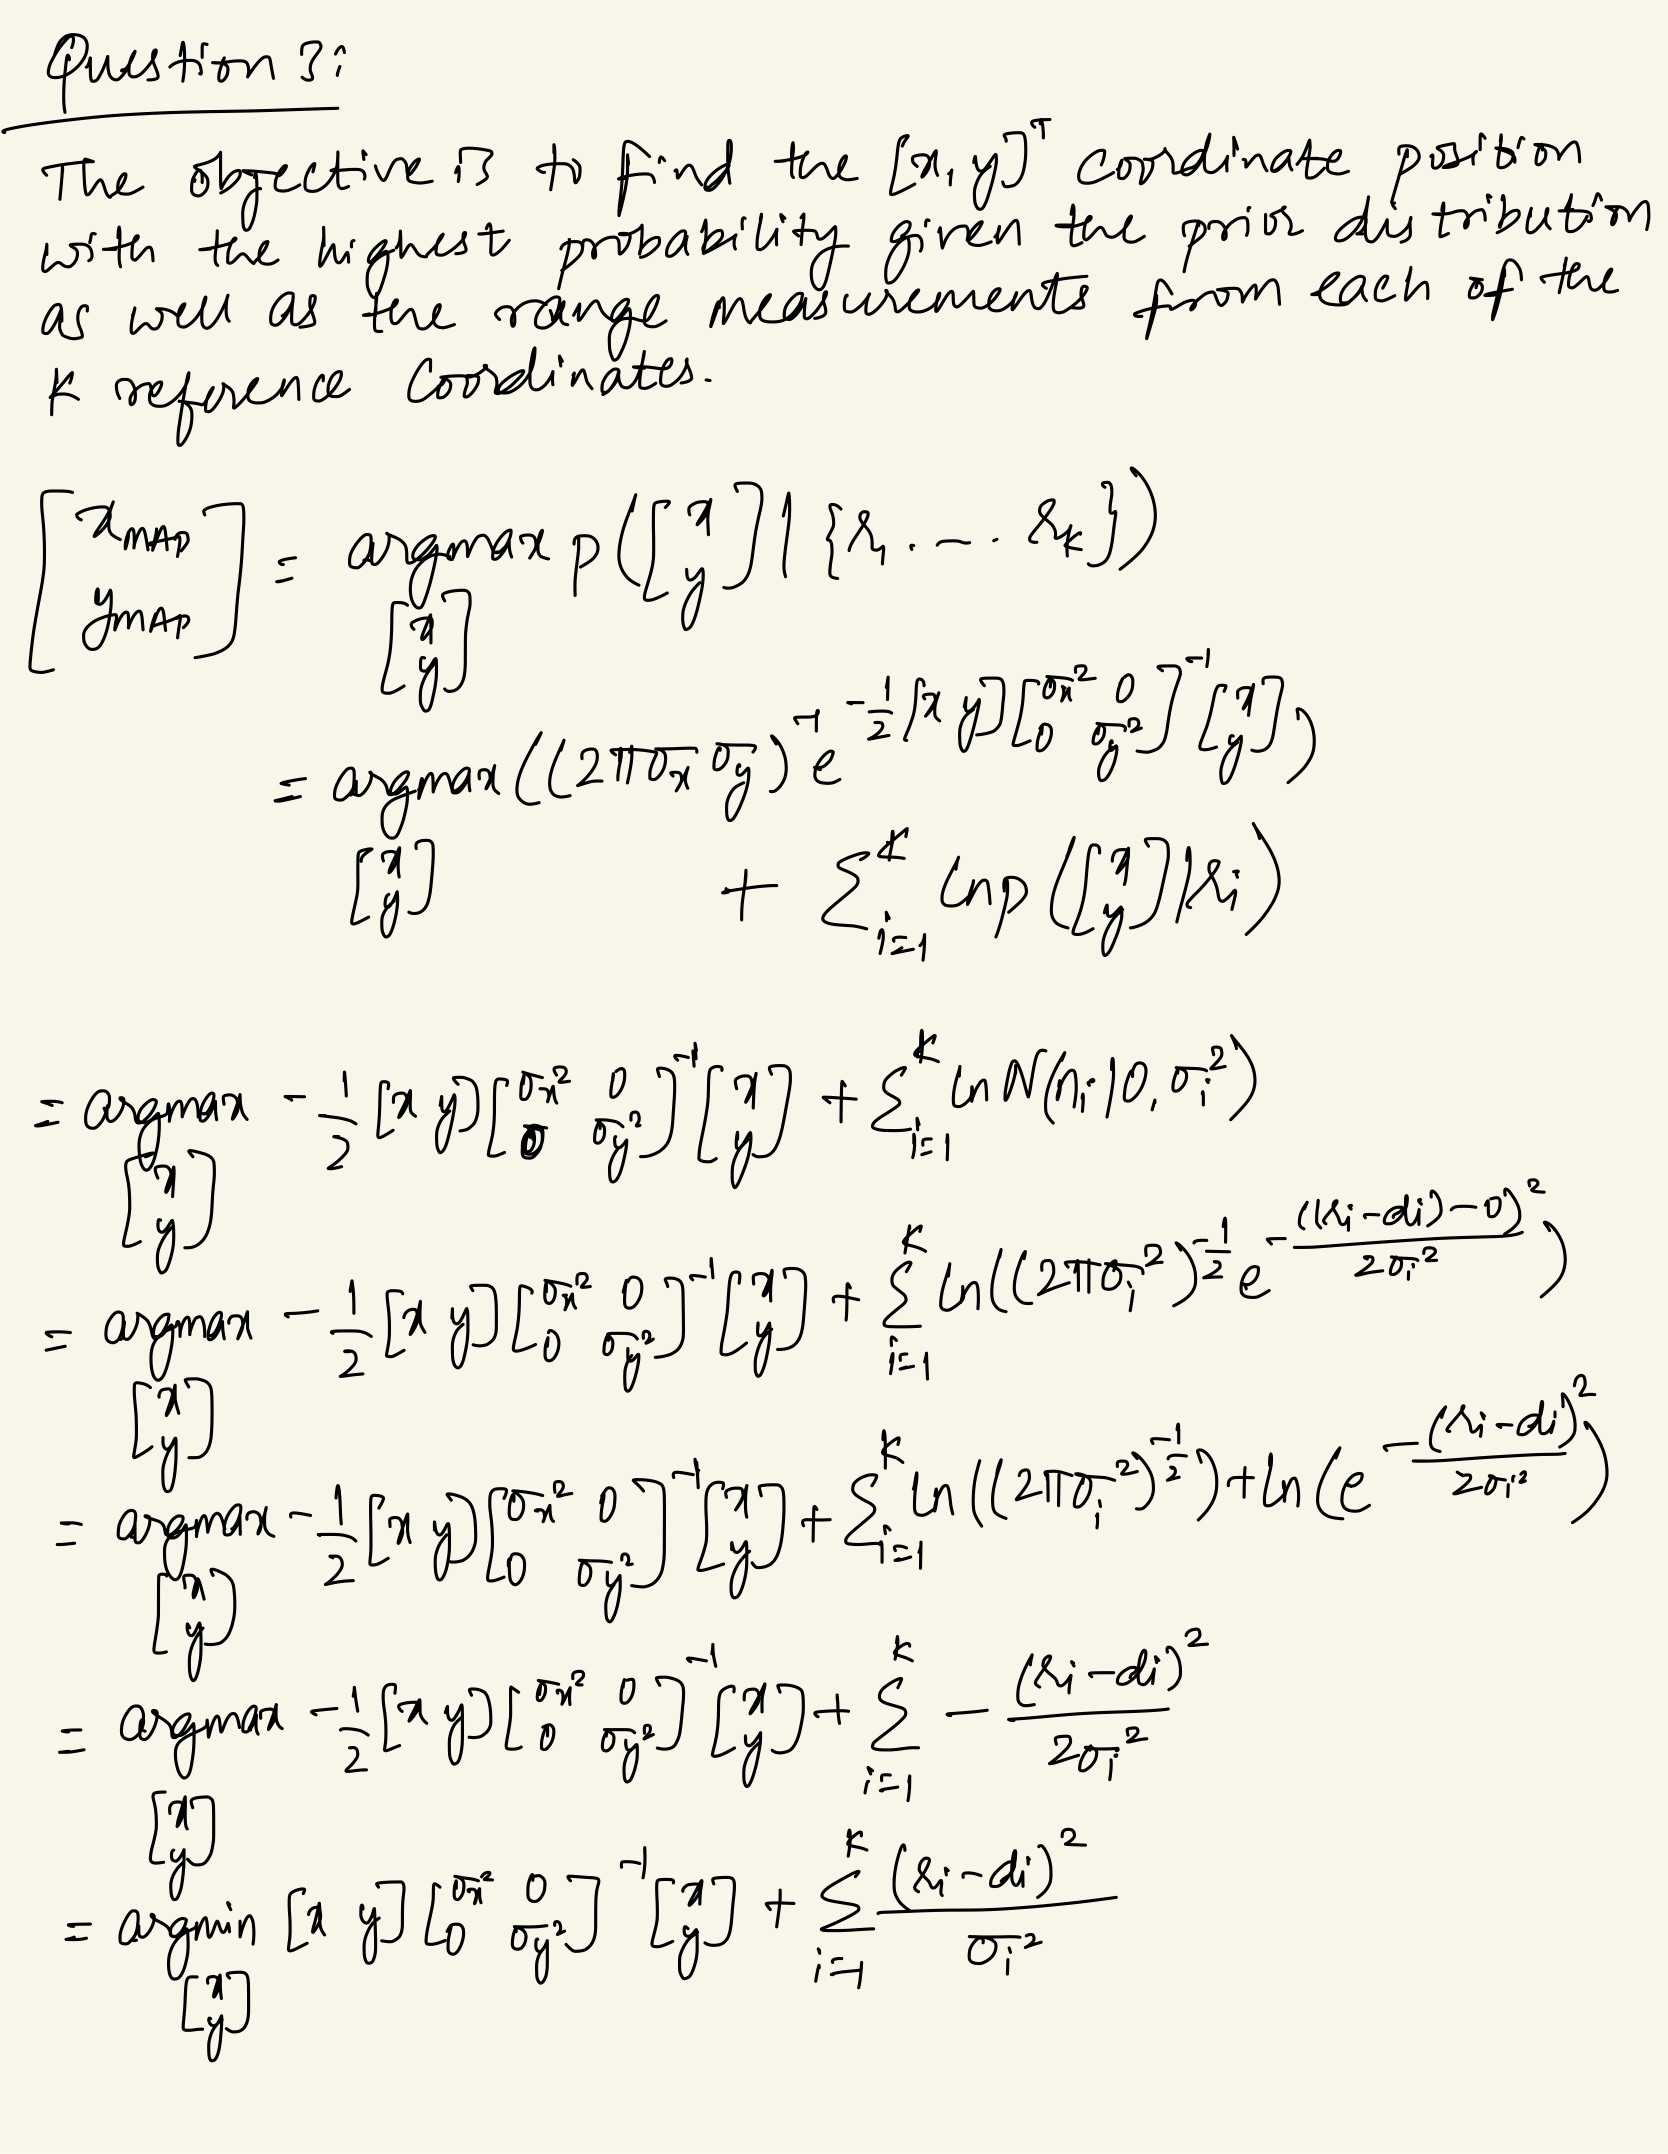 Question 3:
The objective is to find the [x, y]ᵀ coordinate position
with the highest probability given the prior distribution
as well as the range measurements from each of the
K reference coordinates.
[x_MAP; y_MAP] = argmax_{[x; y]} p([x; y] | {r₁ .... r_K})
= argmax_{[x; y]} ((2πσₓσ_y)⁻¹ e^{-1/2 [x y] [σₓ² 0; 0 σ_y²]⁻¹ [x; y]})
+ Σ_{i=1}^{K} ln p([x; y] | rᵢ)
= argmax_{[x; y]} -1/2 [x y] [σₓ² 0; 0 σ_y²]⁻¹ [x; y] + Σ_{i=1}^{K} ln N(nᵢ | 0, σᵢ²)
= argmax_{[x; y]} -1/2 [x y] [σₓ² 0; 0 σ_y²]⁻¹ [x; y] + Σ_{i=1}^{K} ln((2πσᵢ²)^{-1/2} e^{-((rᵢ-dᵢ)-0)²/2σᵢ²})
= argmax_{[x; y]} -1/2 [x y] [σₓ² 0; 0 σ_y²]⁻¹ [x; y] + Σ_{i=1}^{K} ln((2πσᵢ²)^{-1/2}) + ln(e^{-(rᵢ-dᵢ)²/2σᵢ²})
= argmax_{[x; y]} -1/2 [x y] [σₓ² 0; 0 σ_y²]⁻¹ [x; y] + Σ_{i=1}^{K} - (rᵢ-dᵢ)²/2σᵢ²
= argmin_{[x; y]} [x y] [σₓ² 0; 0 σ_y²]⁻¹ [x; y] + Σ_{i=1}^{K} (rᵢ-dᵢ)²/σᵢ²